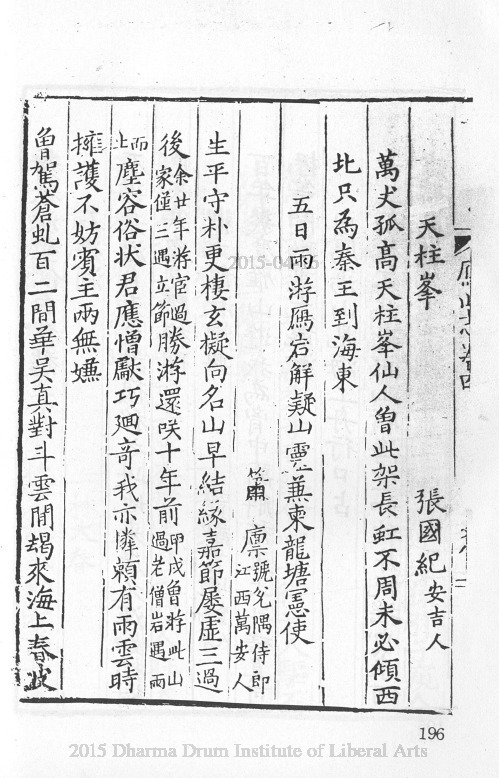 天柱峯　張國紀安吉人
萬丈孤高天柱峯仙人曾此架長虹不周未必傾西
北只為秦王到海東
五日雨游鴈宕解疑山靈兼柬龍塘憲使
蕭　廩號兊隅侍郎江西萬安人
生平守朴更棲玄擬向名山早結緣嘉節屡虛三過
後余廿年游宦過家僅三遇立節勝游還咲十年前甲戌曾游此山過老僧岩遇雨
而止塵容俗状君應憎厭巧廻竒我亦憐頼有雨雲時
擁護不妨賓主兩無嫌
曾駕蒼虬百二間華吴真對斗雲間朅來海上春波
196
2015-04-16
2015 Dharma Drum Institute of Liberal Arts